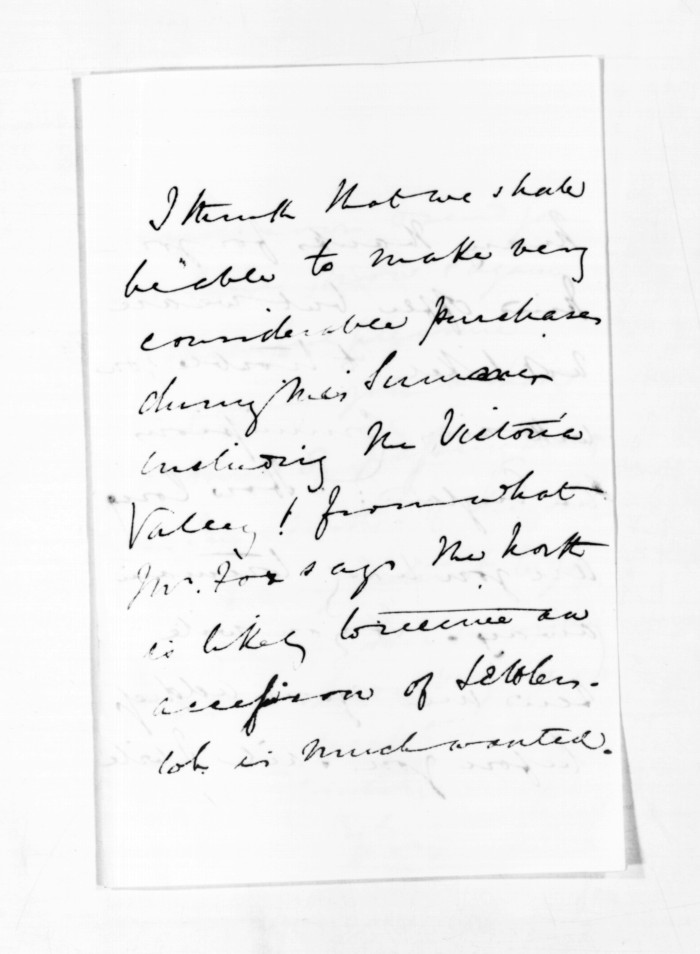 I think that we shall
be able to make very
considerable purchases
during this Summer
including the Victoria
Valley! from what
Mr. Fox says the North
is likely to receive an
accession of Settlers.
wh. is much wanted.